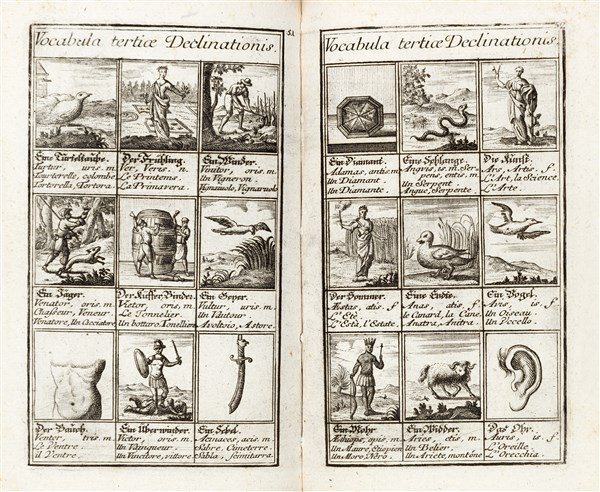 Vocabula tertiæ Declinationis.
52
Eine Türteltaube.
Turtur, uris. m.
Tourterelle, colombe
Tortorella, Tortora.
Der Frühling.
Ver, Veris. n.
Le Printems.
La Primavera.
Ein Winder.
Vinitor, oris. m.
Un Vigneron.
Vignaiuolo, Vignaruolo
Ein Jäger.
Venator, oris. m.
Chasseur, Veneur.
Venatore, Un Cacciatore
Der Küffer, Binder.
Vietor, oris. m.
Le Tonnelier.
Un bottaro, Tonellier
Ein Geyer.
Vultur, uris. m.
Un Vautour.
Avoltoio, Astore.
Der Bauch.
Venter, tris. m.
Le Ventre.
il Ventre.
Ein Uberwinder.
Victor, oris. m.
Un Vainqueur.
Un Vincitore, vittore.
Ein Sebel.
Acinaces, acis. m.
Sabre, Cimeterre.
Sabla, Scimitarra.
Vocabula tertiæ Declinationis.
Ein Diamant.
Adamas, antis. m
Un Diamant.
Un Diamante.
Eine Schlange.
Angvis, is. m. Ser-
pens, entis. m.
Un Serpent.
Angue, Serpente.
Die Kunst.
Ars, Artis. f.
L'Art, la Science.
L'Arte.
Der Sommer.
Æstas, atis. f.
L'Eté.
L'Età, l'Estate.
Eine Endte.
Anas, atis. f.
le Canard, la Cane.
Anatra, Anitra.
Ein Vogel.
Avis, is. f.
Un Oiseau.
Un Vccello.
Ein Mohr
Æthiops, opis. m.
Un Maure, Etiopien
Un Moro, Nero.
Ein Widder.
Aries, etis. m.
Un Belier.
Un Ariete, montone
Das Ohr.
Auris, is. f.
L'Oreille.
L'Orecchia.